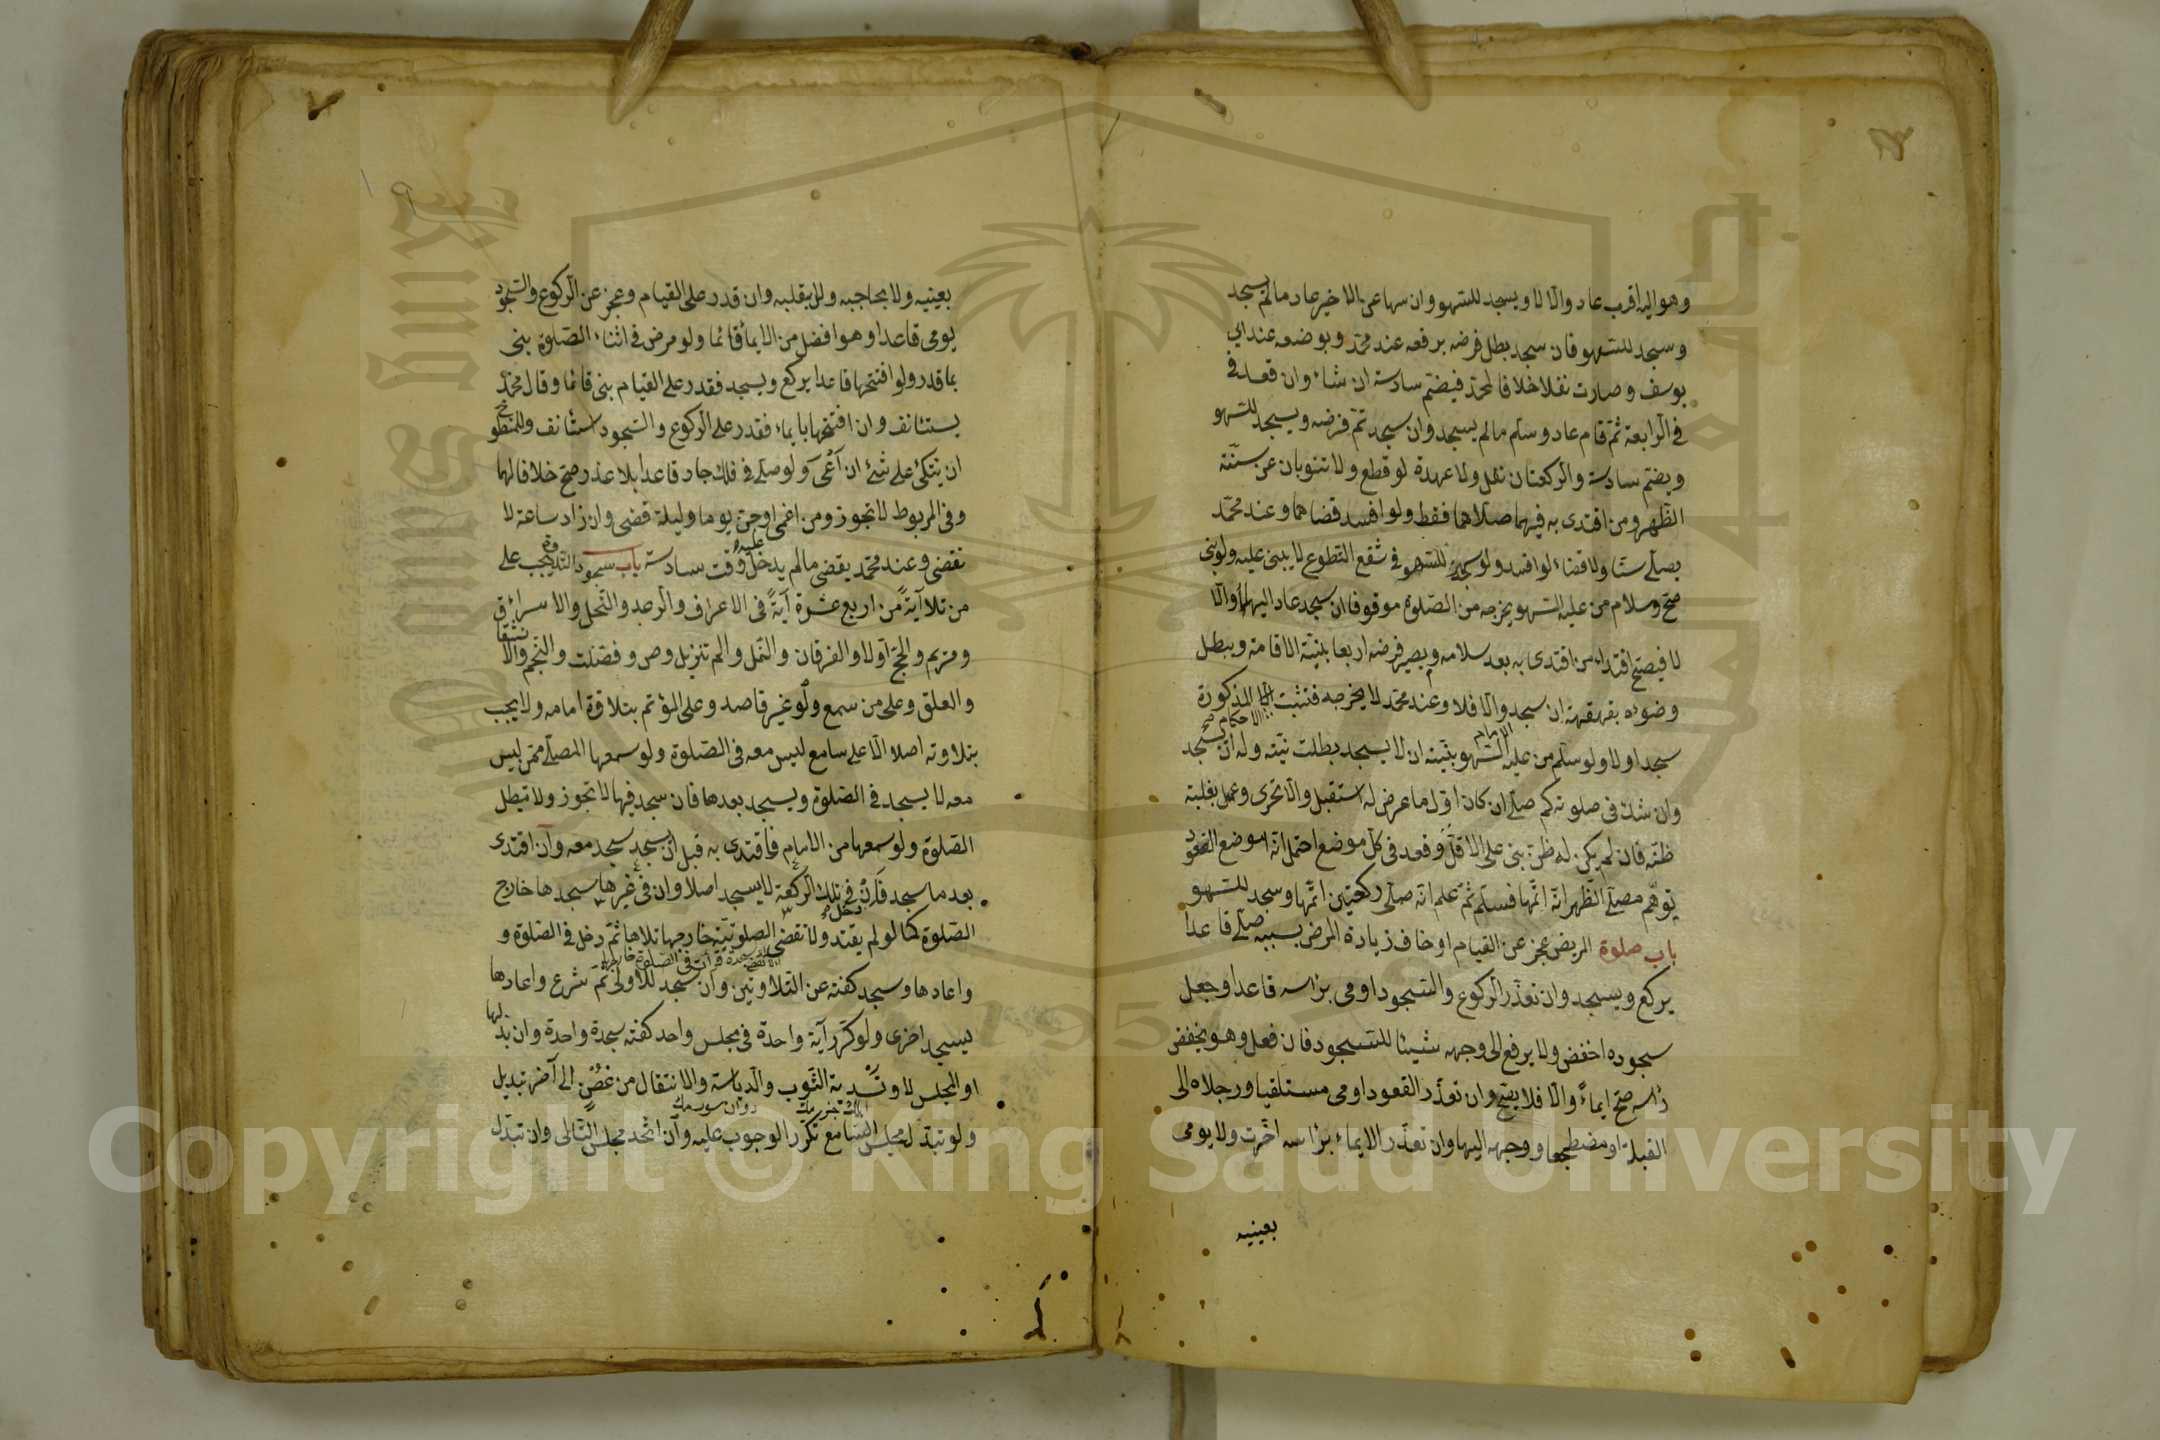 وهو اليه اقرب عاد والّا لا ويسجد للسّهو وان سها عن الاخير عاد مالم يسجد
وسجد للسّهو فان سجد بطل فرضه برفعه عند محمّد وبوضعه عند ابي
يوسف وصارت نفلا خلافا لمحمّد فيضمّ سادسة ان شاء وان قعد في
في الرّابعة ثمّ قام عاد وسلّم مالم يسجد وان سجد تمّ فرضه ويسجد للسّهو
ويضمّ سادسة والرّكعتان نفل ولا عهدة لو قطع ولا تنوبان عن سنّة
الظّهر ومن اقتدى به فيهما صلّاهما فقط ولو افسد قضاهما وعند محمّد
يصلّي ستّا ولا قضاء لو افسد ولو سجد للسّهو في شفع التّطوع لا يبنى عليه ولو بنى
صحّ وسلام من عليه السّهو يخرجه من الصّلوة موقوفا ان سجد عاد اليها والّا
لا فيصحّ اقتداء من اقتدى به بعد سلامه ويصير فرضه اربعا بنيّة الاقامة ويبطل
وضوءه بقهقهة ان سجد والّا فلا وعند محمّد لا يخرجه فتثبت المذكورة
الاحكام صح
سجد اولا ولو سلّم من عليه السّهو بنيّة ان لا يسجد بطلت نيّته وله ان يسجد
وان شك في صلوته كم صلّى ان كان اوّل ما عرض له استقبل والّا تحرى وعمل بغلبة
ظنّه فان لم يكن له ظنّ بنى على الاقلّ وقعد في كلّ موضع احتمل انّه موضع القعود
توهّم مصلّى الظّهر انّه اتمّها فسلّم ثمّ علم انّه صلّى ركعتين اتمّها وسجد للسّهو
باب صلوة المريض عجز عن القيام او خاف زيادة المرض بسببه صلّى قاعدا
يركع ويسجد وان تعذّر الرّكوع والسّجود اومى برأسه قاعدا وجعل
سجوده اخفض ولا يرفع الى وجهه شيئا للسّجود فان فعل وهو يخفض
رأسه صحّ ايماءً والّا فلا يصحّ وان تعذّر القعود اومى مستلقيا ورجلاه الى
القبلة او مضطجعا ووجهه اليها وان تعذّر الايماء برأسه اخّرت ولا يومى
بعينيه
بعينيه ولا بحاجبه ولا بقلبه وان قدر على القيام وعجز عن الرّكوع والسّجود
يومى قاعدا وهو افضل من الايماء قائما ولو مرض في اثناء الصّلوة بنى
بما قدر ولو افتتحها قاعدا يركع ويسجد فقدر على القيام بنى قائما وقال محمّد
يستئانف وان افتتحها بايماء فقدر على الرّكوع والسّجود استئانف وللمتطوّع
ان يتكئ على شئ ان اعى ولو صلّى في فلك جار قاعدا بلا عذر صحّ خلافا لهما
وفي المربوط لا تجوز ومن اغمى او جنّ يوما وليلة قضى وان زاد ساعة لا
تقضى وعند محمّد يقضى مالم يدخل وقت سادسة باب سجود التّلاوة يجب على
عليه
من تلا آية من اربع عشرة آية في الاعراف والرّعد والنّحل والاسراء ق
ومريم والحجّ اولا والفرقان والنّمل والم تنزيل وص وفصّلت والنّجم والانشقاق
والعلق وعلى من سمع ولو غير قاصد وعلى المؤتم بتلاوة امامه ولا يجب
بتلاوته اصلا الّا على سامع ليس معه في الصّلوة ولو سمعها المصلّى ممّن ليس
معه لا يسجد في الصّلوة ويسجد بعدها فان سجد فيها لا تجوز ولا تبطل
الصّلوة ولو سمعها من الامام فاقتدى به قبل ان يسجد سجد معه وان اقتدى
بعد ما سجد فان في تلك الرّكعة لا يسجد اصلا وان في غيرها سجدها خارج
الصّلوة كما لو لم يقتد ولا تقضى الصلوتيّة خارجها تلاها ثمّ دخل في الصّلوة و
واعادها وسجد كفته عن التّلاوتين وان سجد للاولى ثمّ شرع واعادها
يسجد اخرى ولو كرّر آية واحدة في مجلس واحد كفته سجدة واحدة وان بدّلها
او المجلس لا وتسدية الثّوب والدّياسة والانتقال من غصن الى آخر تبديل
ولو تبدّل مجلس السّامع تكرّر الوجوب عليه وان اتّحد مجلس التّالى وان تبدّل
King Saud University
1957
Copyright © King Saud University